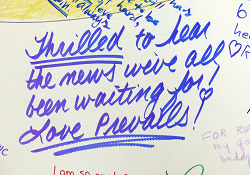 always
Thrilled to hear
the news we've all
been waiting for!
Love Prevails!
FOR
my
I am so